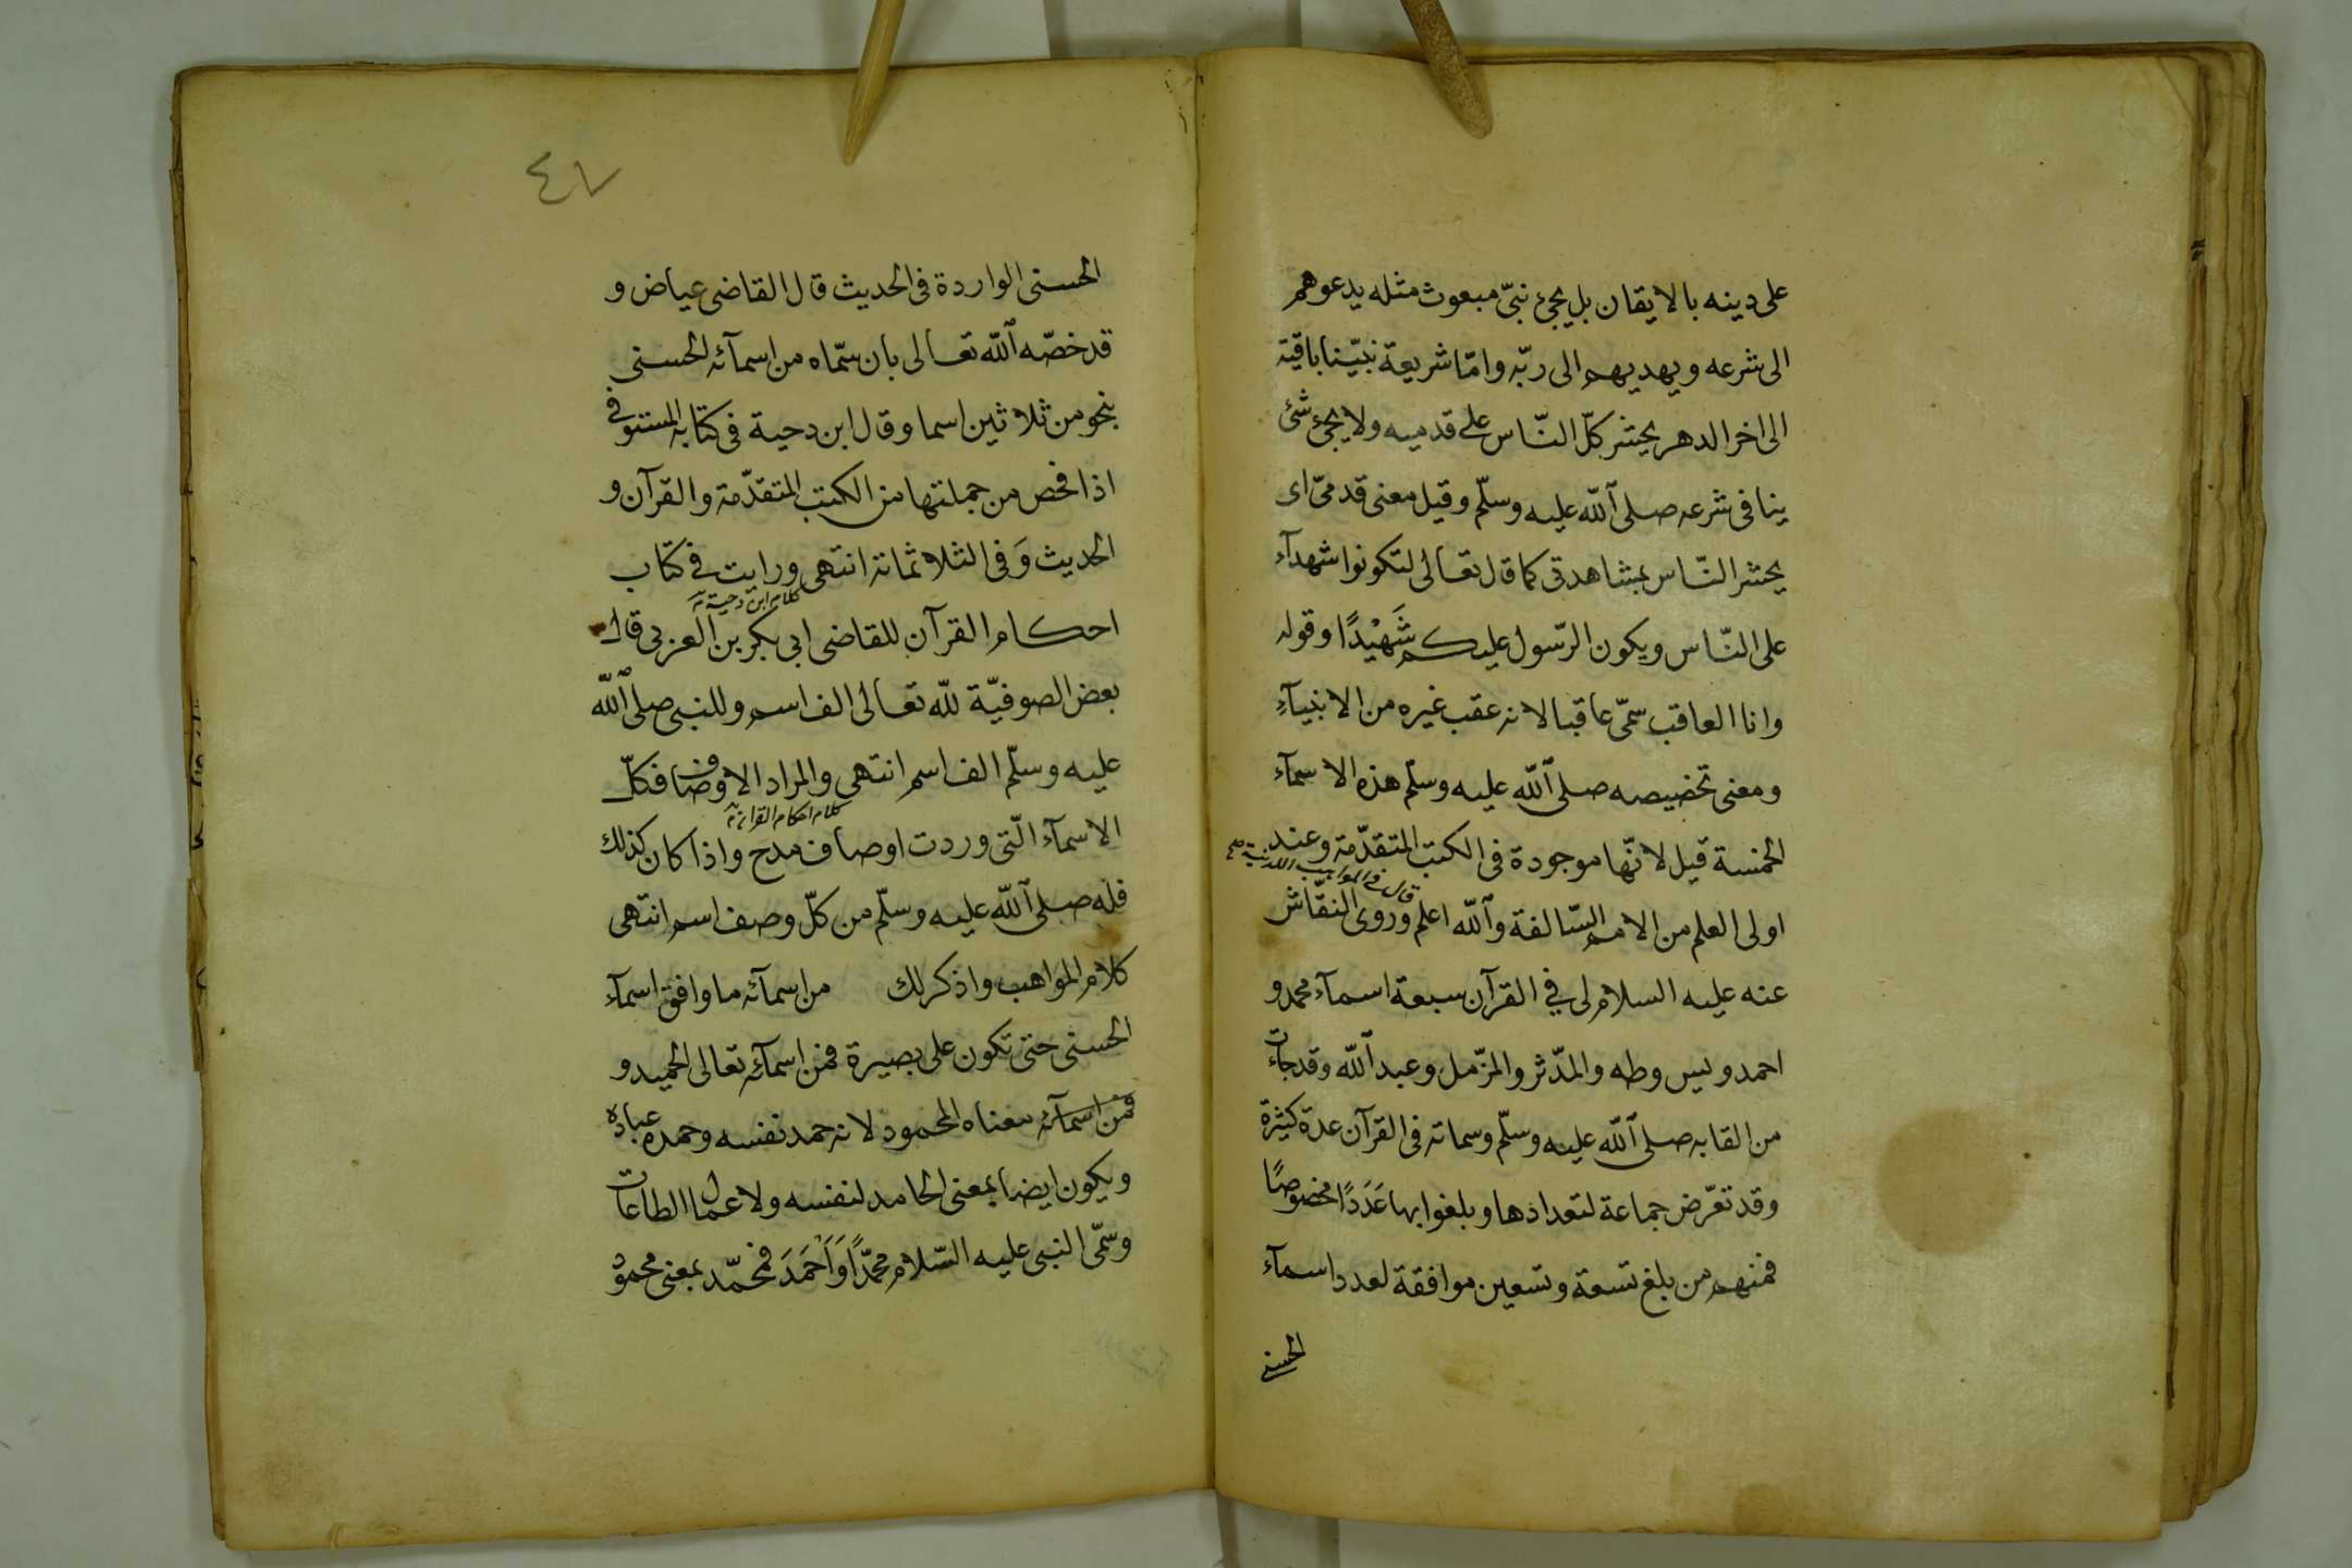 على دينه بالايقان بل يجئ نبىّ مبعوث مثله يدعوهم
الى شرعه ويهديهم الى ربّه وامّا شريعة نبيّنا باقية
الى اخر الدهر يحشر كلّ النّاس على قدميه ولا يجئ شئ
ينافى شرعه صلى الله عليه وسلّم وقيل معنى قدمىّ اى
يحشر النّاس بمشاهدتى كما قال تعالى لتكونوا شهدآء
على النّاس ويكون الرّسول عليكم شَهِيْدًا وقوله
وانا العاقب سمّى عاقبا لانه عقب غيره من الانبيآءِ
ومعنى تخصيصه صلى الله عليه وسلّم هذه الاسمآء
الخمسة قيل لانّها موجودة فى الكتب المتقدّمة وعند
قال فى المواهب اللدنية صح
اولى العلم من الامم السّالفة والله اعلم وروى النقّاش
عنه عليه السلام لى فى القرآن سبعة اسمآء محمد و
احمد ويس وطه والمدّثر والمزّمل وعبد الله وقد جاءت
من القابه صلى الله عليه وسلّم وسماته فى القرآن عدة كثيرة
وقد تعرّض جماعة لتعدادها وبلغوا بها عَدَدًا مخصوصًا
فمنهم من بلغ تسعة وتسعين موافقة لعدد اسمآء
الحسنى
٤٧
الحسنى الواردة فى الحديث قال القاضى عياض و
قد خصّه الله تعالى بان سمّاه من اسمآئه الحسنى
بنحو من ثلاثين اسما وقال ابن دحية فى كتابه المستوفى
اذا فحص من جملتها من الكتب المتقدّمة والقرآن و
الحديث وَفى الثلاثمائة انتهى ورايت فى كتاب
كلام ابن دحية
احكام القرآن للقاضى ابى بكر بن العربى قال
بعض الصوفيّة لله تعالى الف اسم وللنبى صلى الله
عليه وسلّم الف اسم انتهى والمراد الاوصاف فكلّ
كلام احكام القرآن
الاسمآء الّتى وردت اوصاف مدح واذا كان كذلك
فله صلى الله عليه وسلّم من كلّ وصف اسم انتهى
كلام المواهب واذكر لك من اسمآئه ما وافق اسمآء
الحسنى حتى تكون على بصيرة فمن اسمآئه تعالى الحميد و
فمن اسمآئه معناه المحمود لانه حمد نفسه وحمده عباده
ويكون ايضا بمعنى الحامد لنفسه ولاعمال الطاعات
وسمّى النبى عليه السّلام محمّدًا وَاَحْمَدَ فمحمّد بمعنى محمود